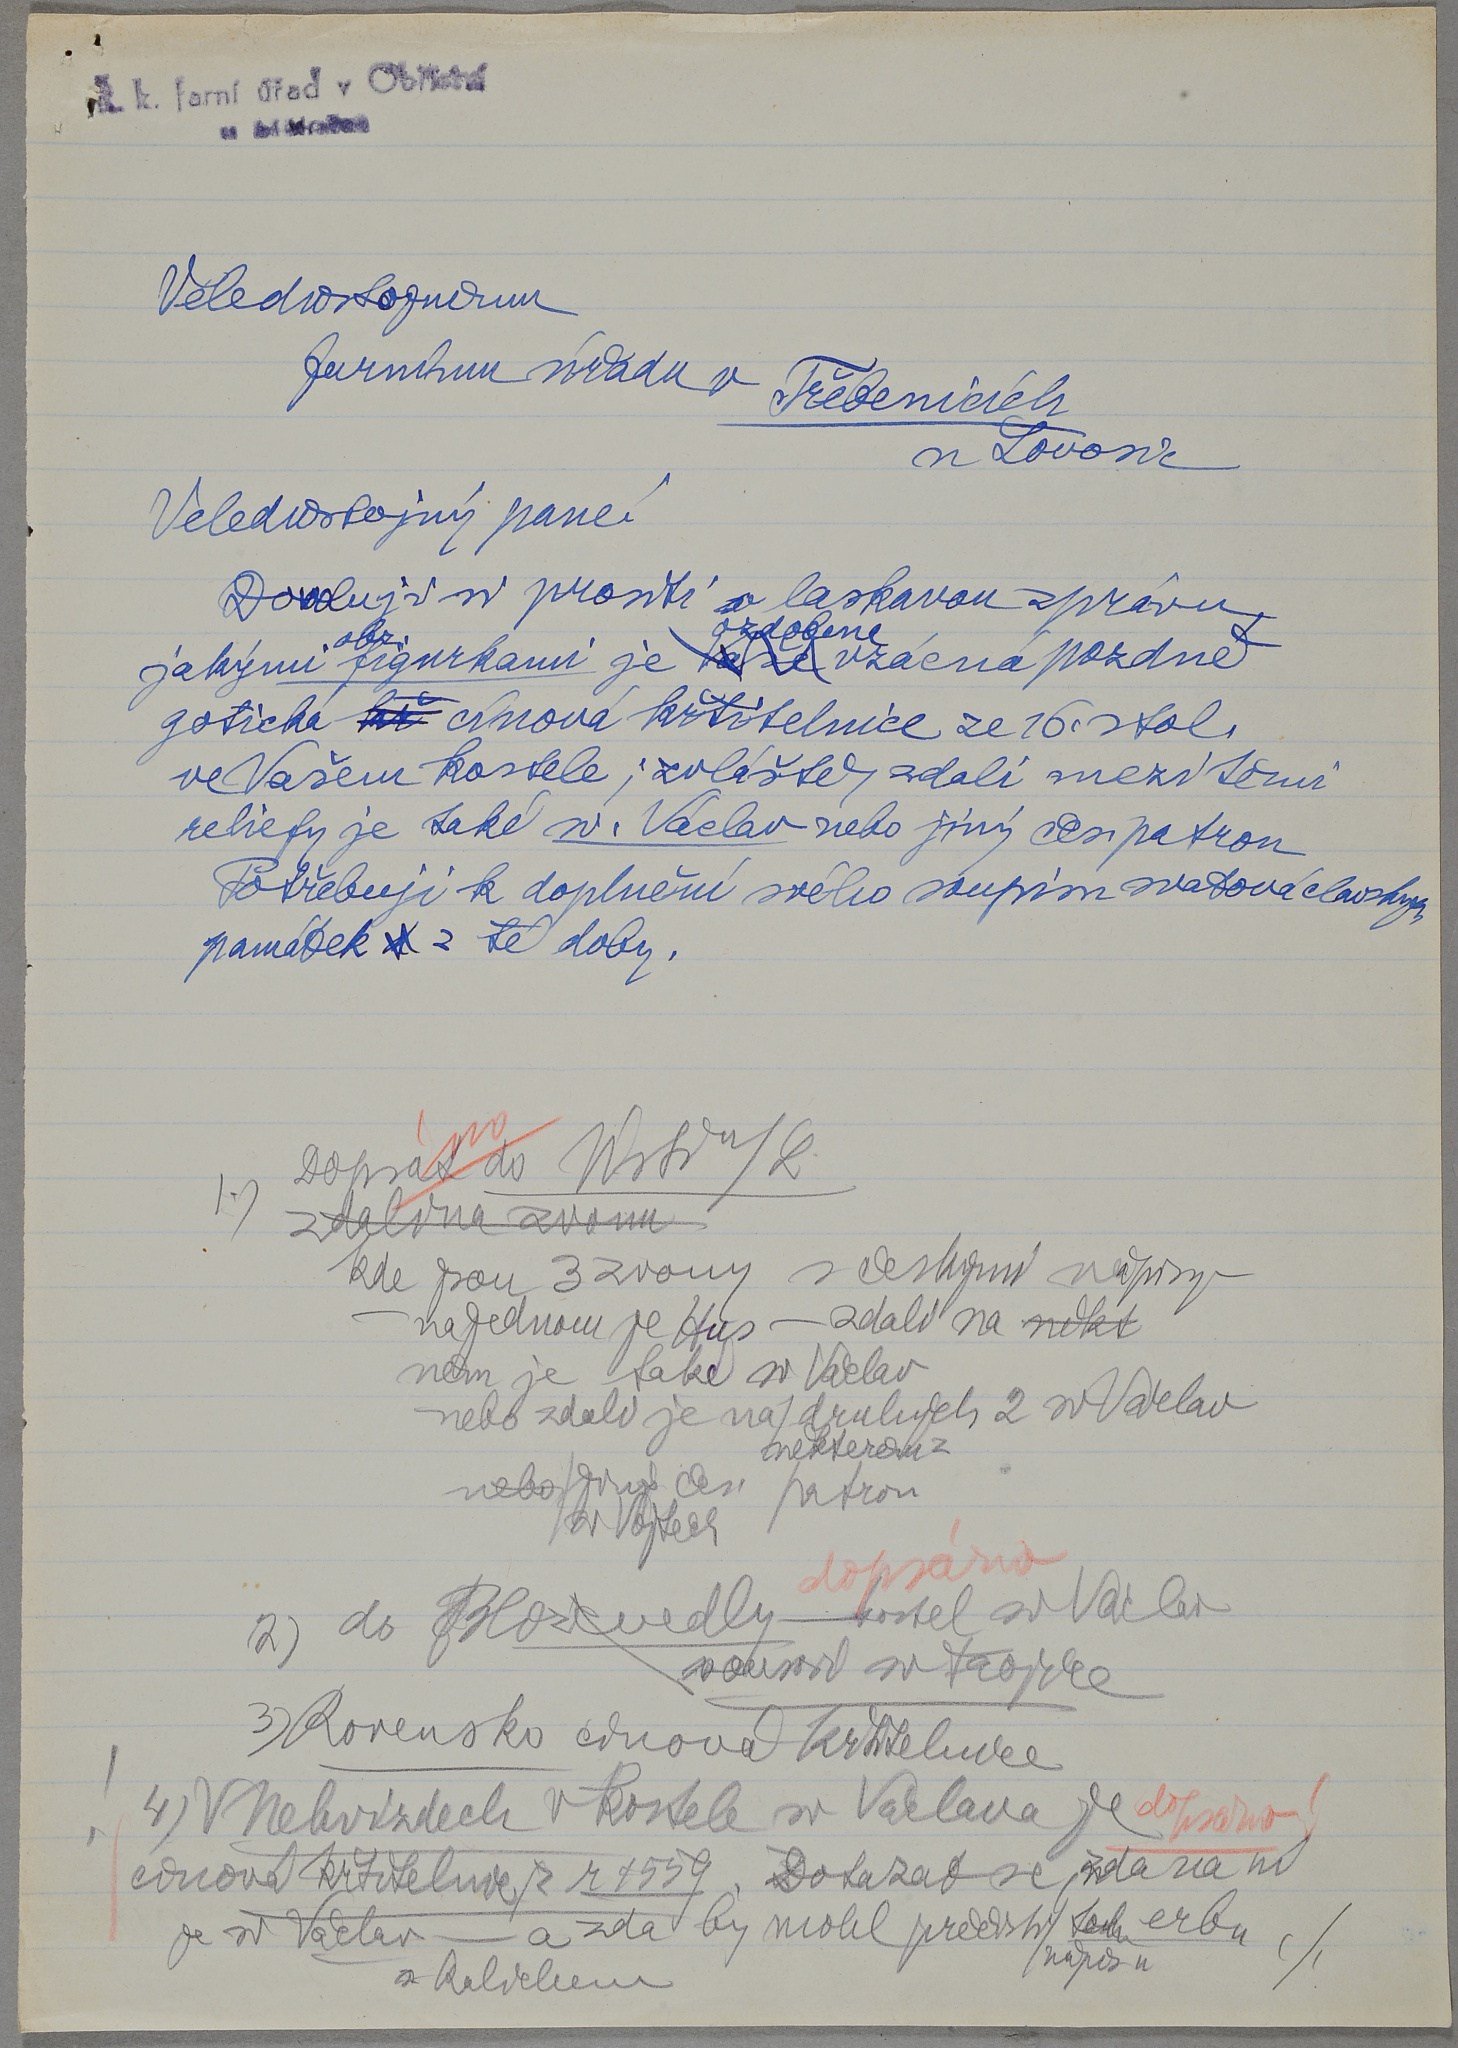 Ř. k. farní úřad v Obříství
Veledůstojnému
farnímu úřadu v Třebenicích
u Lovosic
Veledůstojný pane!
Dovoluji si prositi o laskavou zprávu,
obr. ozdobena
jakými figurkami je vzácná pozdně
gotická kř cínová křtitelnice ze 16. stol.
ve Vašem kostele, zvláště, zdali mezi těmi
reliefy je také sv. Václav nebo jiný čes. patron
Potřebuji k doplnění svého soupisu svatováclavských
památek z té doby.
1.) Dopsát do Ústí n/L.
zdali na zvonu
kde jsou 3 zvony s českými nápisy
– na jednom je Hus – zdali na někt
něm je také sv Václav
nebo zdali je na druhých 2 sv Václav
některém z
nebo jiný čes. patron
sv Vojtěch
dopsáno
2) do Blozevedly – kostel sv Václav
sv trojice
3) Rovensko cínová křtitelnice
4) V Nehvizdech v kostele sv Václava je dopsáno!
cínová křtitelnice z r 1559. Dotázat se, zda na ní
je sv Václav – a zda by mohl předisti erbu
nápisu
s kalichem